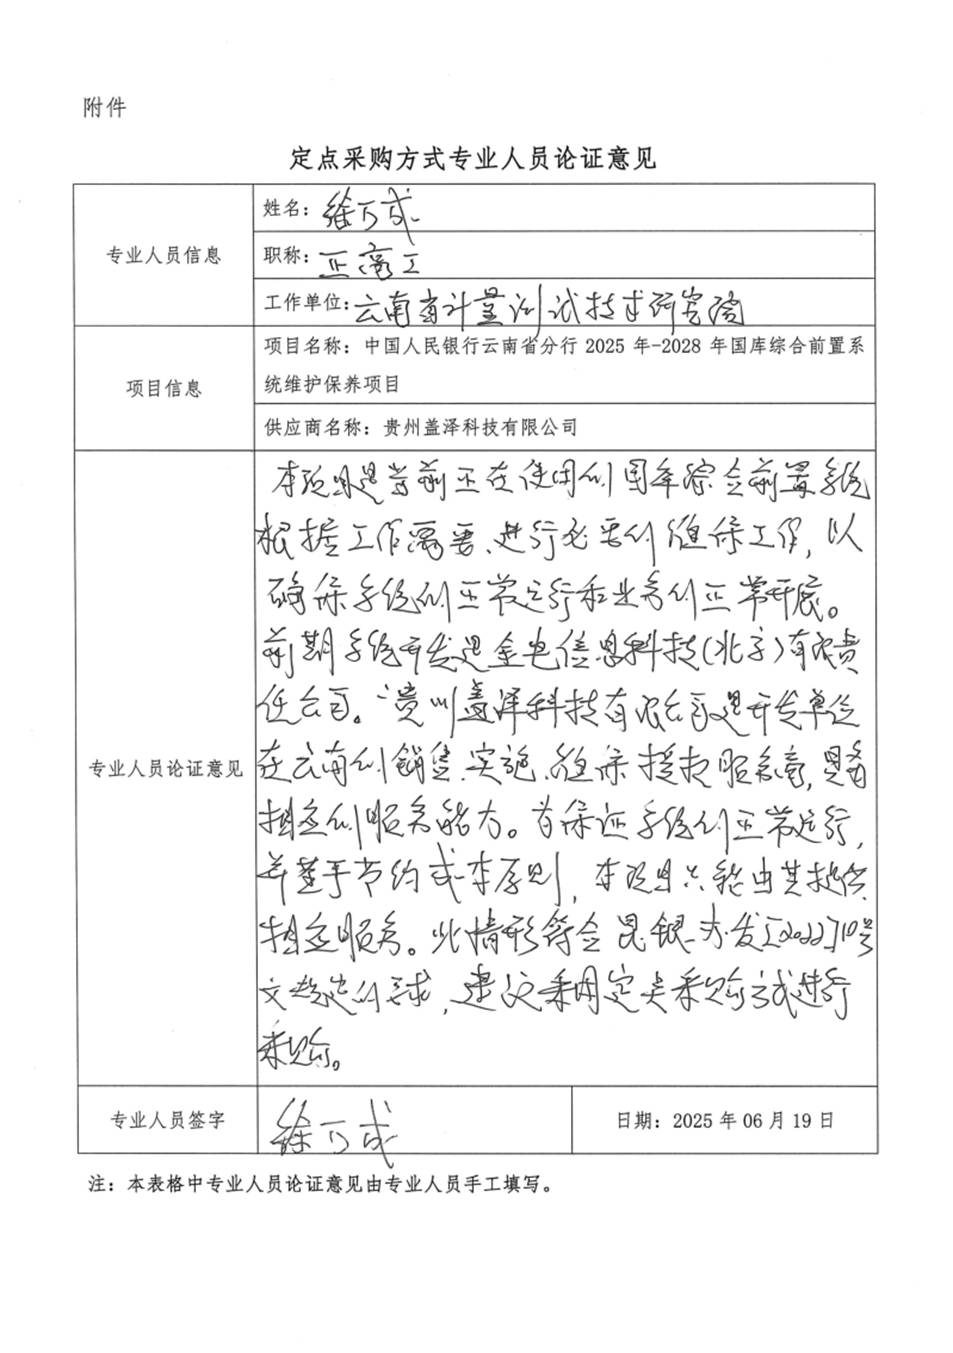 附件
定点采购方式专业人员论证意见
专业人员信息
姓名：徐万成
职称：正高工
工作单位：云南省计量测试技术研究院
项目信息
项目名称：中国人民银行云南省分行 2025 年-2028 年国库综合前置系
统维护保养项目
供应商名称：贵州盖泽科技有限公司
专业人员论证意见
本项目是当前正在使用的国库综合前置系统
根据工作需要、进行必要的维保工作，以
确保系统的正常运行和业务的正常开展。
前期系统开发是金电信息科技(北京)有限责
任公司。贵州盖泽科技有限公司是开发单位
在云南的销售、实施、维保授权服务商，具备
相应的服务能力。为保证系统的正常运行，
并基于节约成本原则，本项目只能由其提供
相应服务。此情形符合昆银办发[2022]10号
文规定的要求，建议采用定点采购方式进行
采购。
专业人员签字
徐万成
日期：2025 年 06 月 19 日
注：本表格中专业人员论证意见由专业人员手工填写。